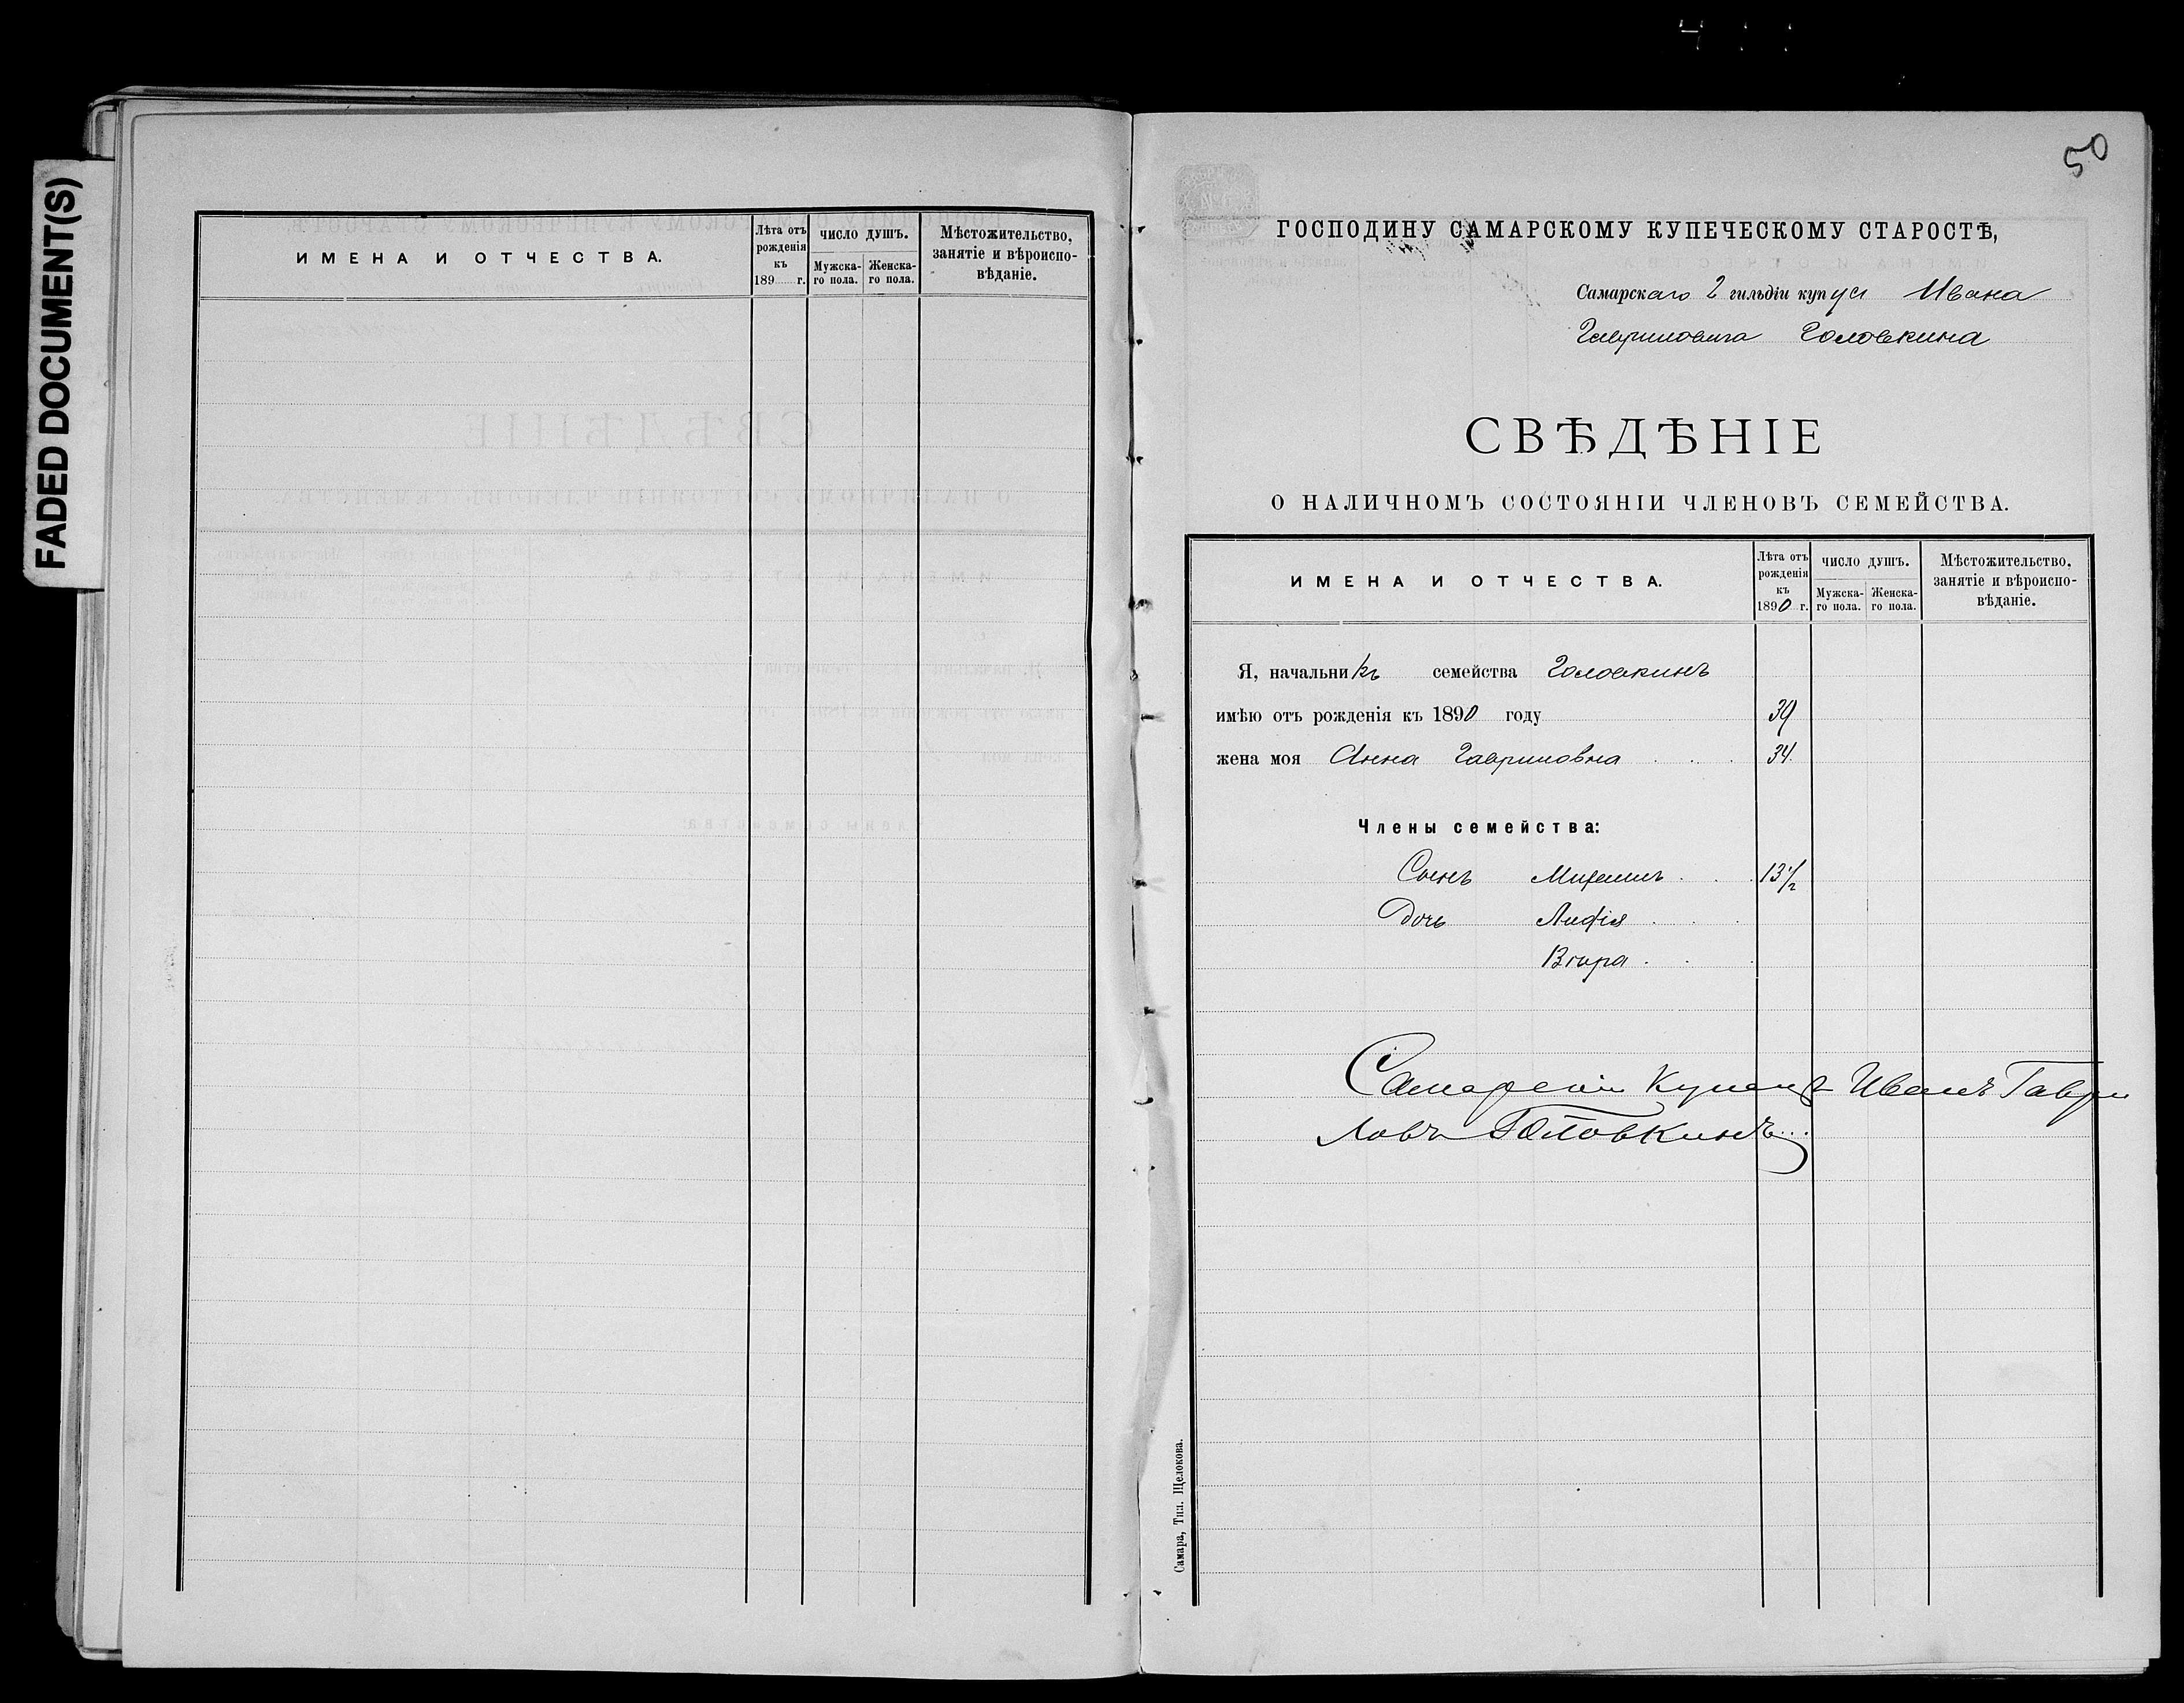 FADED DOCUMENT(S)
ИМЕНА И ОТЧЕСТВА.
Лѣта отъ рожденія къ 189 г.
ЧИСЛО ДУШЪ.
Мужска-го пола.
Женска-го пола.
Мѣстожительство, занятіе и вѣроиспо-вѣданіе.
50
ГОСПОДИНУ САМАРСКОМУ КУПЕЧЕСКОМУ СТАРОСТѢ,
Самарскаго 2 гильдіи купца Ивана
Гавриловича Головкина
СВѢДѢНІЕ
О НАЛИЧНОМЪ СОСТОЯНІИ ЧЛЕНОВЪ СЕМЕЙСТВА.
ИМЕНА И ОТЧЕСТВА.
Лѣта отъ рожденія къ 1890 г.
ЧИСЛО ДУШЪ.
Мужска-го пола.
Женска-го пола.
Мѣстожительство, занятіе и вѣроиспо-вѣданіе.
Я, начальникъ семейства Головкинъ
имѣю отъ рожденія къ 1890 году 39
жена моя Анна Гавриловна 34
Члены семейства:
Сынъ Михаилъ 13 1/2
Дочь Лидія
Вѣра
Самарскій Купецъ Иванъ Гаври
ловъ Головкинъ
Самара, Тип. Щелокова.